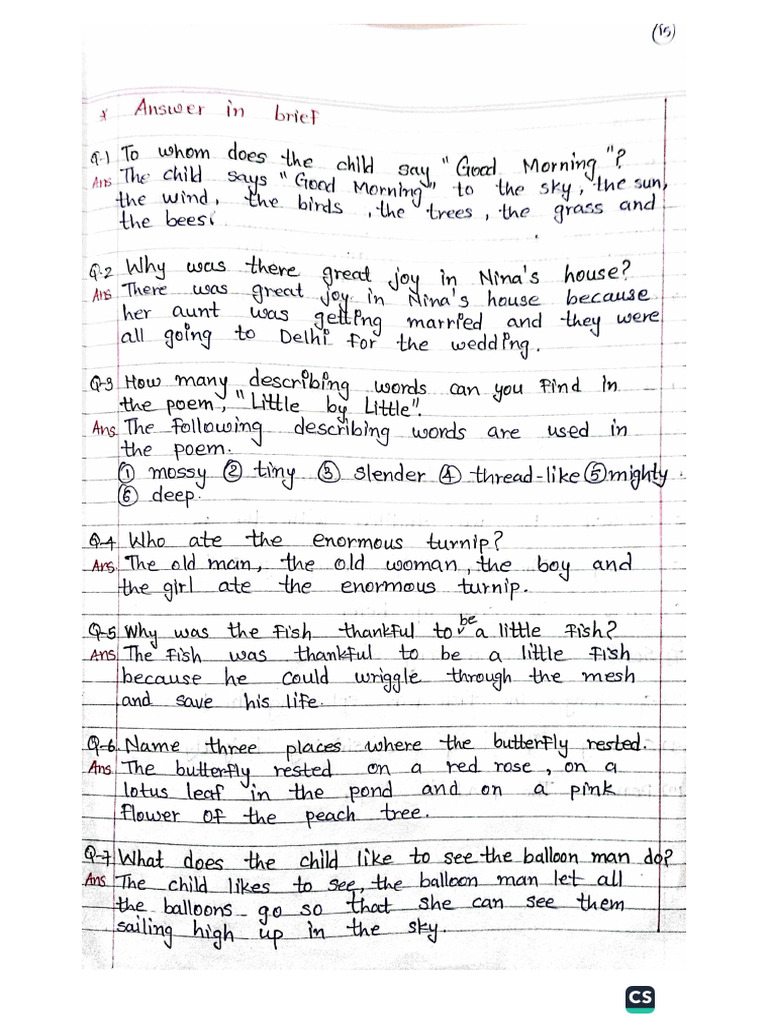 (15)
* Answer in brief
Q-1 To whom does the child say "Good Morning"?
Ans The child says "Good Morning" to the sky, the sun,
the wind, the birds, the trees, the grass and
the bees.
Q-2 Why was there great joy in Nina's house?
Ans There was great joy in Nina's house because
her aunt was getting married and they were
all going to Delhi for the wedding.
Q-3 How many describing words can you find in
the poem, "Little by Little".
Ans. The following describing words are used in
the poem.
① mossy ② tiny ③ slender ④ thread-like ⑤ mighty.
⑥ deep.
Q-4 Who ate the enormous turnip?
Ans. The old man, the old woman, the boy and
the girl ate the enormous turnip.
Q-5 Why was the fish thankful to be a little fish?
Ans The fish was thankful to be a little fish
because he could wriggle through the mesh
and save his life.
Q-6 Name three places where the butterfly rested.
Ans The butterfly rested on a red rose, on a
lotus leaf in the pond and on a pink
flower of the peach tree.
Q-7 What does the child like to see the balloon man do?
Ans The child likes to see, the balloon man let all
the balloons go so that she can see them
sailing high up in the sky.
CS